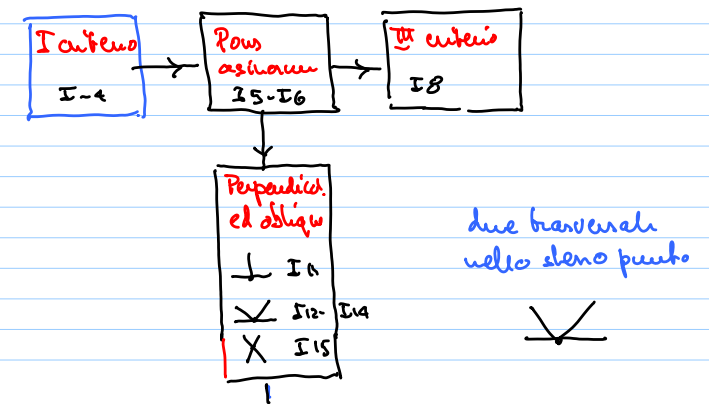 I criterio
I-4
Pons
asinorum
I5-I6
III criterio
I8
Perpendicol.
ed oblique
I11
I12-I14
I15
due trasversali
nello stesso punto